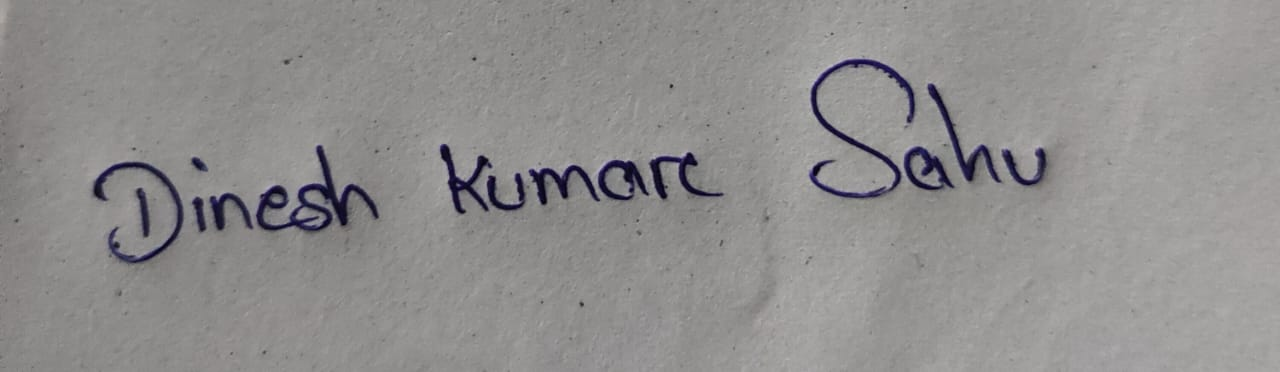 Dinesh Kumar Sahu